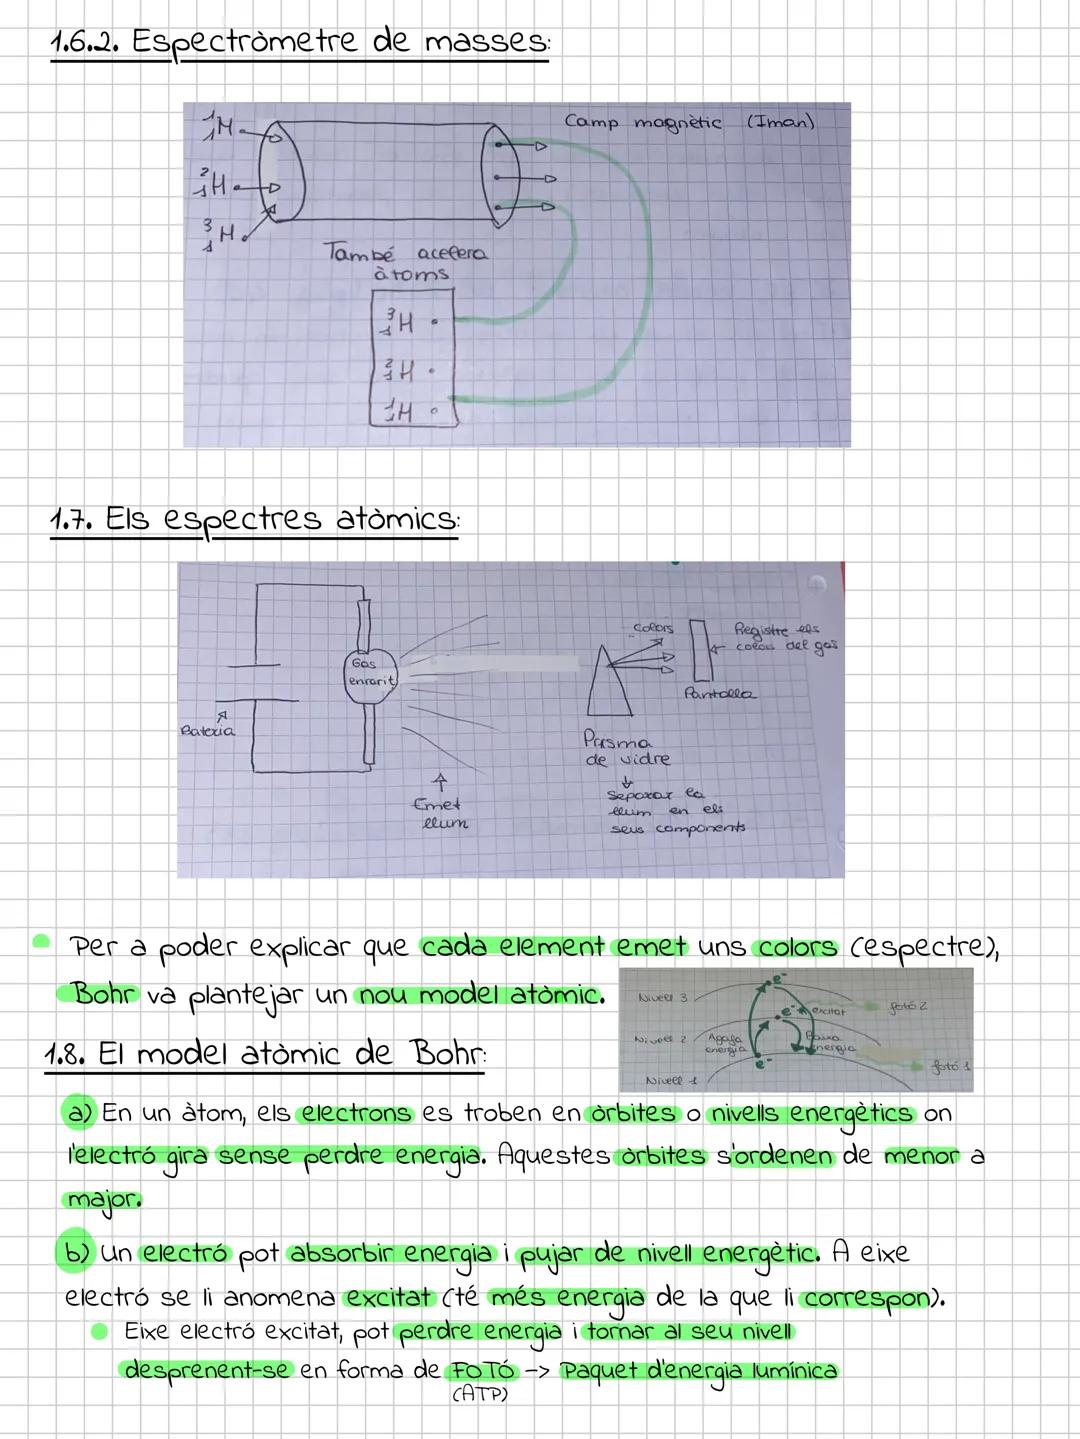 1.6.2. Espectròmetre de masses:
¹₁H
Camp magnètic (Iman)
²₁H
³₁H
També accelera
àtoms
³₁H
²₁H
¹₁H
1.7. Els espectres atòmics:
Gas
enrarit
Bateria
Emet
llum
Colors
Registre els
colors del gas
Pantalla
Prisma
de vidre
Separar la
llum en els
seus components
Per a poder explicar que cada element emet uns colors (espectre),
Bohr va plantejar un nou model atòmic.
Nivell 3
e⁻
e⁻ excitat
fotó 2
Nivell 2
Agafa
energia
Baixa
energia
e⁻
fotó 1
Nivell 1
1.8. El model atòmic de Bohr:
a) En un àtom, els electrons es troben en òrbites o nivells energètics on
l'electró gira sense perdre energia. Aquestes òrbites s'ordenen de menor a
major.
b) Un electró pot absorbir energia i pujar de nivell energètic. A eixe
electró se li anomena excitat (té més energia de la que li correspon).
Eixe electró excitat, pot perdre energia i tornar al seu nivell
desprenent-se en forma de FOTÓ -> Paquet d'energia lumínica
(ATP)